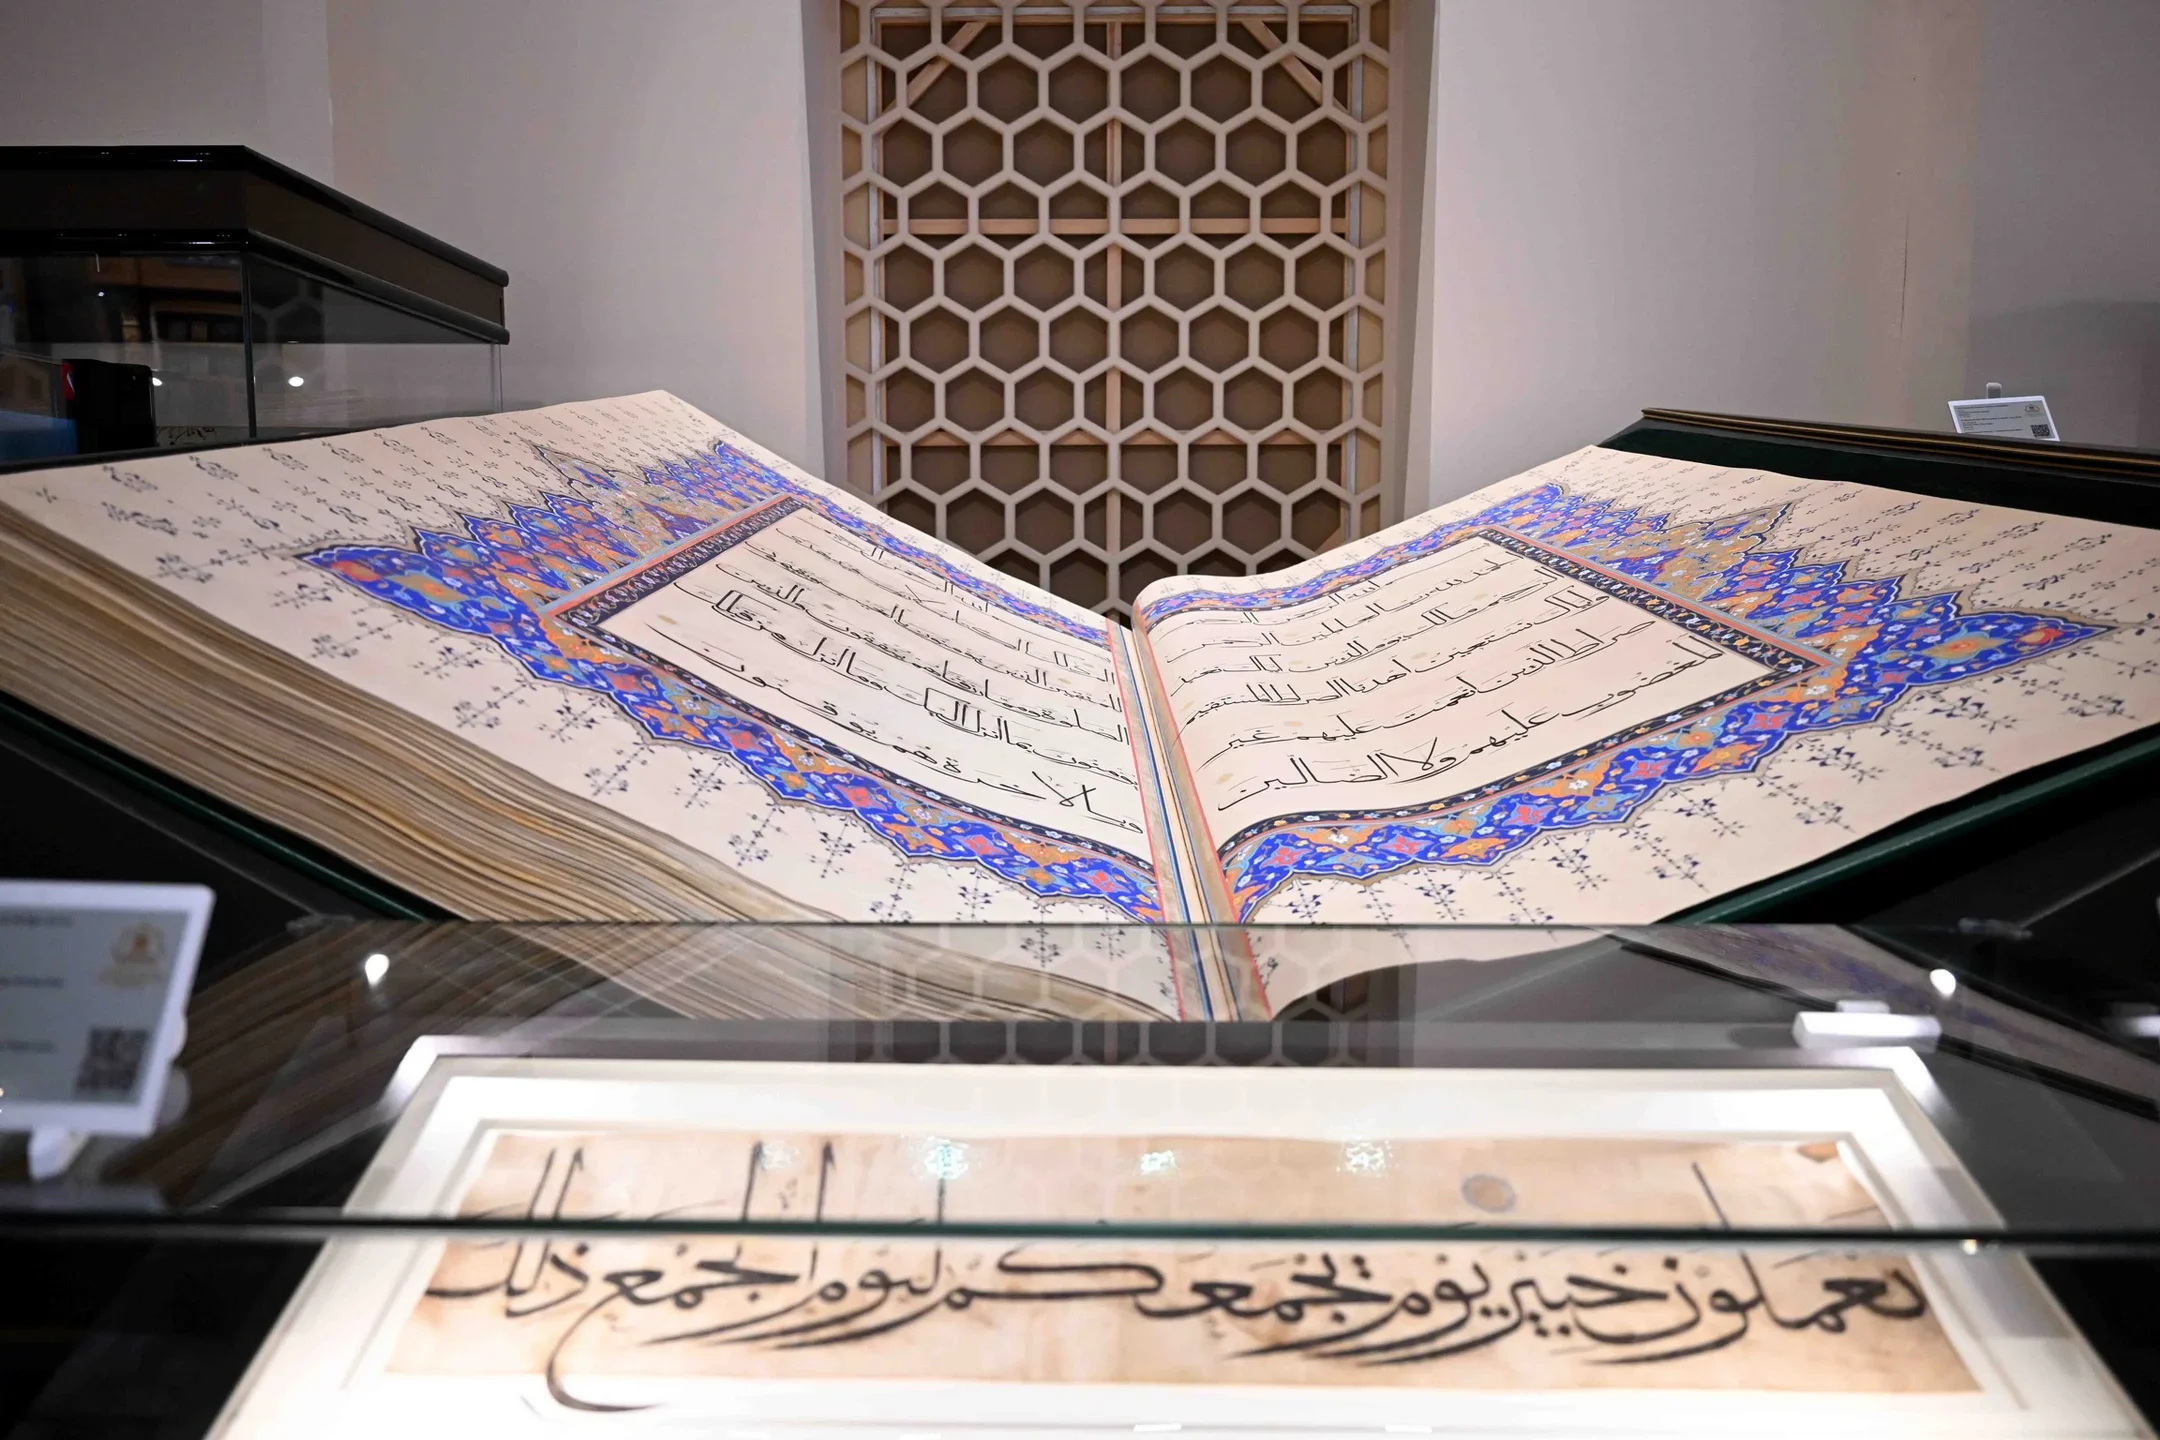 بسم الله الرحمن الرحيم
الحمد لله رب العالمين الرحمن
الرحيم مالك يوم الدين اياك نعبد
واياك نستعين اهدنا الصراط المستقيم
صراط الذين انعمت عليهم غير
المغضوب عليهم ولا الضالين
بسم الله الرحمن الرحيم
الم ذلك الكتاب لا ريب فيه هدى
للمتقين الذين يؤمنون بالغيب ويقيمون
الصلوة ومما رزقناهم ينفقون والذين
يؤمنون بما انزل اليك وما انزل من قبلك
وبالاخرة هم يوقنون
تعملون خبير يوم يجمعكم ليوم الجمع ذلك